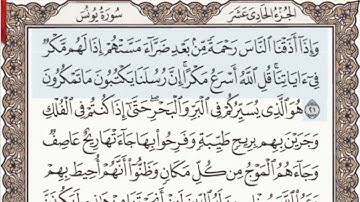 الجزء الحادي عشر سورة يونس
وَإِذَا أَذَقْنَا النَّاسَ رَحْمَةً مِّنۢ بَعْدِ ضَرَّآءَ مَسَّتْهُمْ إِذَا لَهُم مَّكْرٌ
فِىٓ ءَايَاتِنَا ۚ قُلِ ٱللَّهُ أَسْرَعُ مَكْرًا ۚ إِنَّ رُسُلَنَا يَكْتُبُونَ مَا تَمْكُرُونَ
٢١ هُوَ ٱلَّذِى يُسَيِّرُكُمْ فِى ٱلْبَرِّ وَٱلْبَحْرِ ۖ حَتَّىٰٓ إِذَا كُنتُمْ فِى ٱلْفُلْكِ
وَجَرَيْنَ بِهِم بِرِيحٍ طَيِّبَةٍ وَفَرِحُوا۟ بِهَا جَآءَتْهَا رِيحٌ عَاصِفٌ
وَجَآءَهُمُ ٱلْمَوْجُ مِن كُلِّ مَكَانٍ وَظَنُّوٓا۟ أَنَّهُمْ أُحِيطَ بِهِمْ